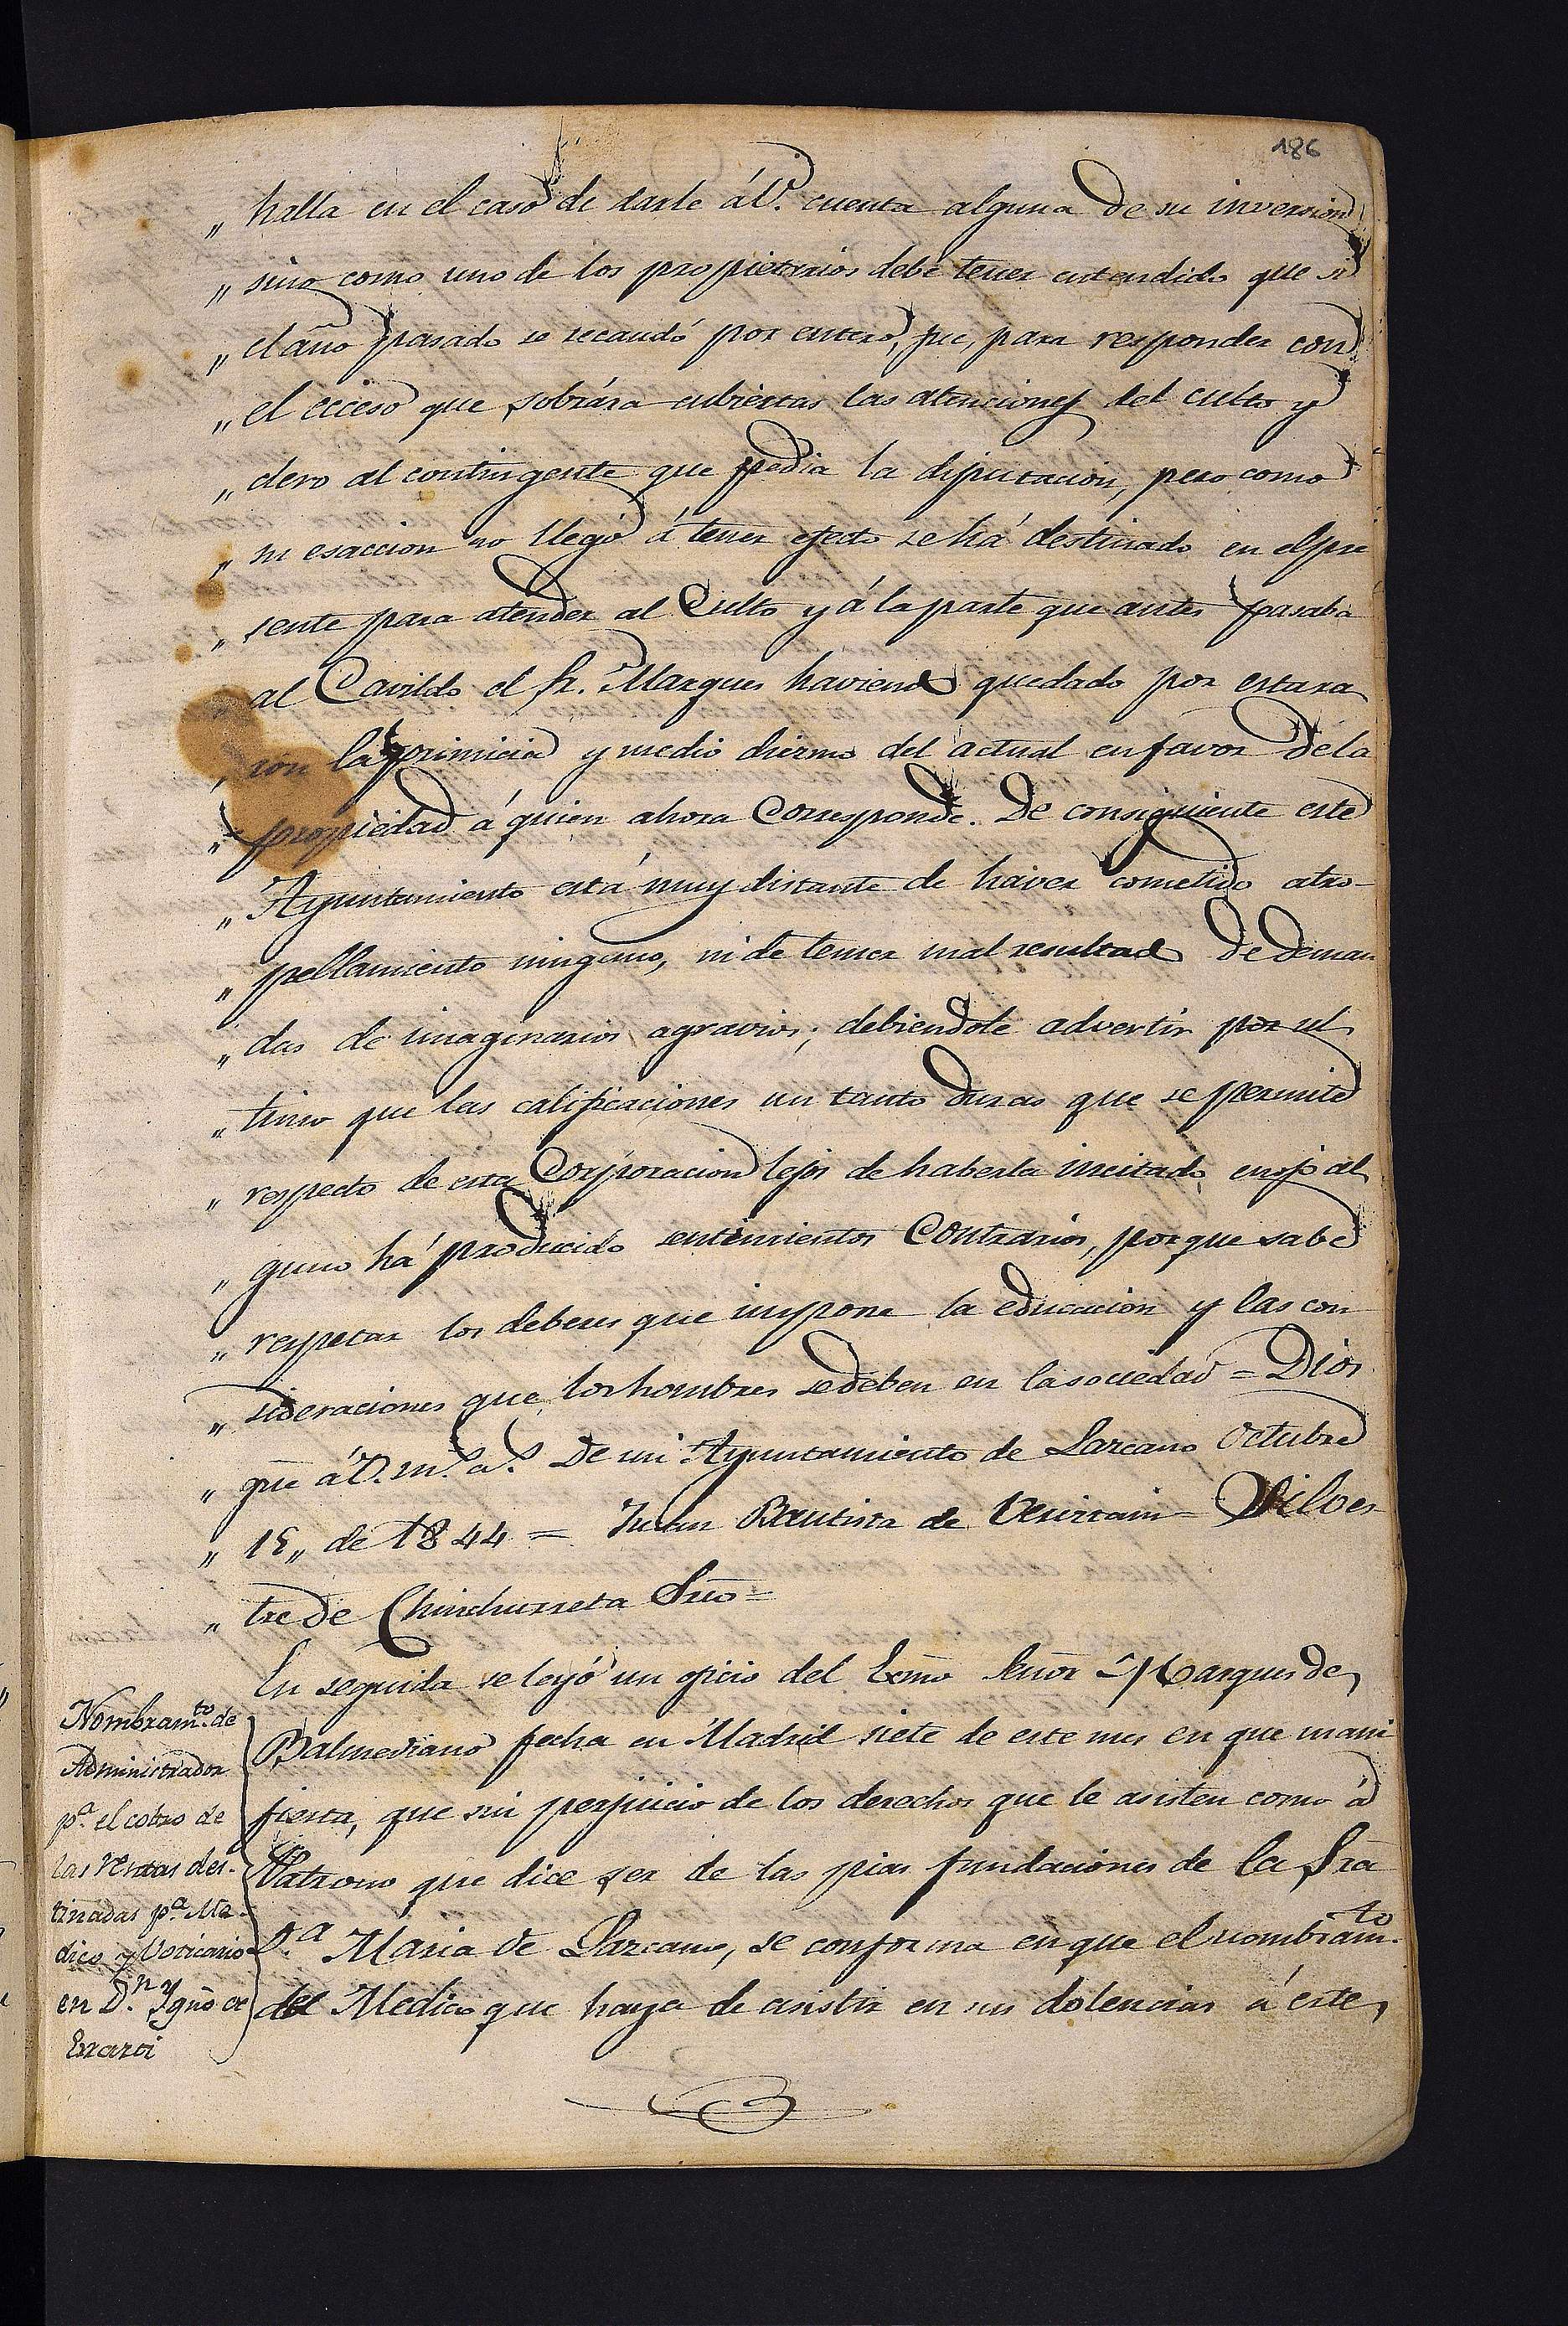 186
„ halla en el caso de darle á V. cuenta alguna de su inversion
„ sino como uno de los propietarios debe tener entendido que si
„ el año pasado se recaudó por entero, fue, para responder con
„ el ecceso que sobrára cubiertas las atenciones del culto y
„ clero al contingente que pedia la diputacion, pero como
„ su esaccion no llegó á tener efecto se há destinado en el pre
„ sente para atender al Culto y á la parte que antes pasaba
„ al Cavildo el Sr. Marques haviendo quedado por esta ra
„ zon la primicia y medio diezmo del actual en favor de la
„ propiedad á quien ahora Corresponde. De consiguiente este
„ Ayuntamiento está muy distante de haver cometido atro-
„ pellamiento ninguno, ni de temer mal resultado de deman
„ das de imaginarios agravios; debiendole advertir por ul
„ timo que las calificaciones un tanto duras que se permite
„ respecto de esta Corporacion lejos de haberla incitado enojo al
„ guno há producido sentimientos Contrarios, porque sabe
„ respetar los deberes que impone la educacion y las con
„ sideraciones que los hombres se deben en la sociedad = Dios
„ gũe á V. m.s a.s De mi Ayuntamiento de Lazcano Octubre
„ 15„ de 1844 = Juan Bautista de = Silves
„ tre de Chinchurreta Srio =
En seguida se leyó un oficio del Ecmo Señor Marques de
Balmediano fecha en Madrid siete de este mes en que mani
fiesta, que sin perjuicio de los derechos que le asisten como á
Patrono que dice ser de las pias fundaciones de la Sra
D.ª Maria de Lazcano, se conforma en que el nombram.to
del Medico que haya de asistir en sus dolencias á este
Nombram.to de
Administrador
p.ª el cobro de
las rentas des-
tinadas p.ª Me-
dico y Voticario
en D.n Ygño de
Erarci